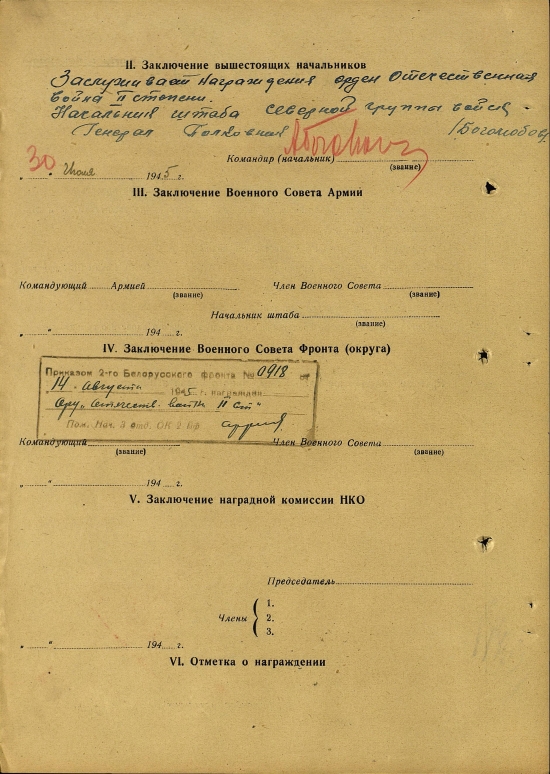 II. Заключение вышестоящих начальников
Заслуживает награждения орден Отечественная
война II степени.
Начальник штаба Северной группы войск
Генерал Полковник /Боголюбов/
Командир (начальник)
(звание)
30 " Июня 1945 г.
III. Заключение Военного Совета Армий
Командующий Армией Член Военного Совета
(звание) (звание)
Начальник штаба
(звание)
" " 194 г.
IV. Заключение Военного Совета Фронта (округа)
Приказом 2-го Белорусского фронта № 0918 от
14. Августа 1945 г. награжден
Орд. Отечеств. война II ст"
Пом. Нач. 3 отд. ОК 2 БФ
Командующий Член Военного Совета
(звание) (звание)
" " 194 г.
V. Заключение наградной комиссии НКО
Председатель
Члены { 1.
2.
3.
" " 194 г.
VI. Отметка о награждении